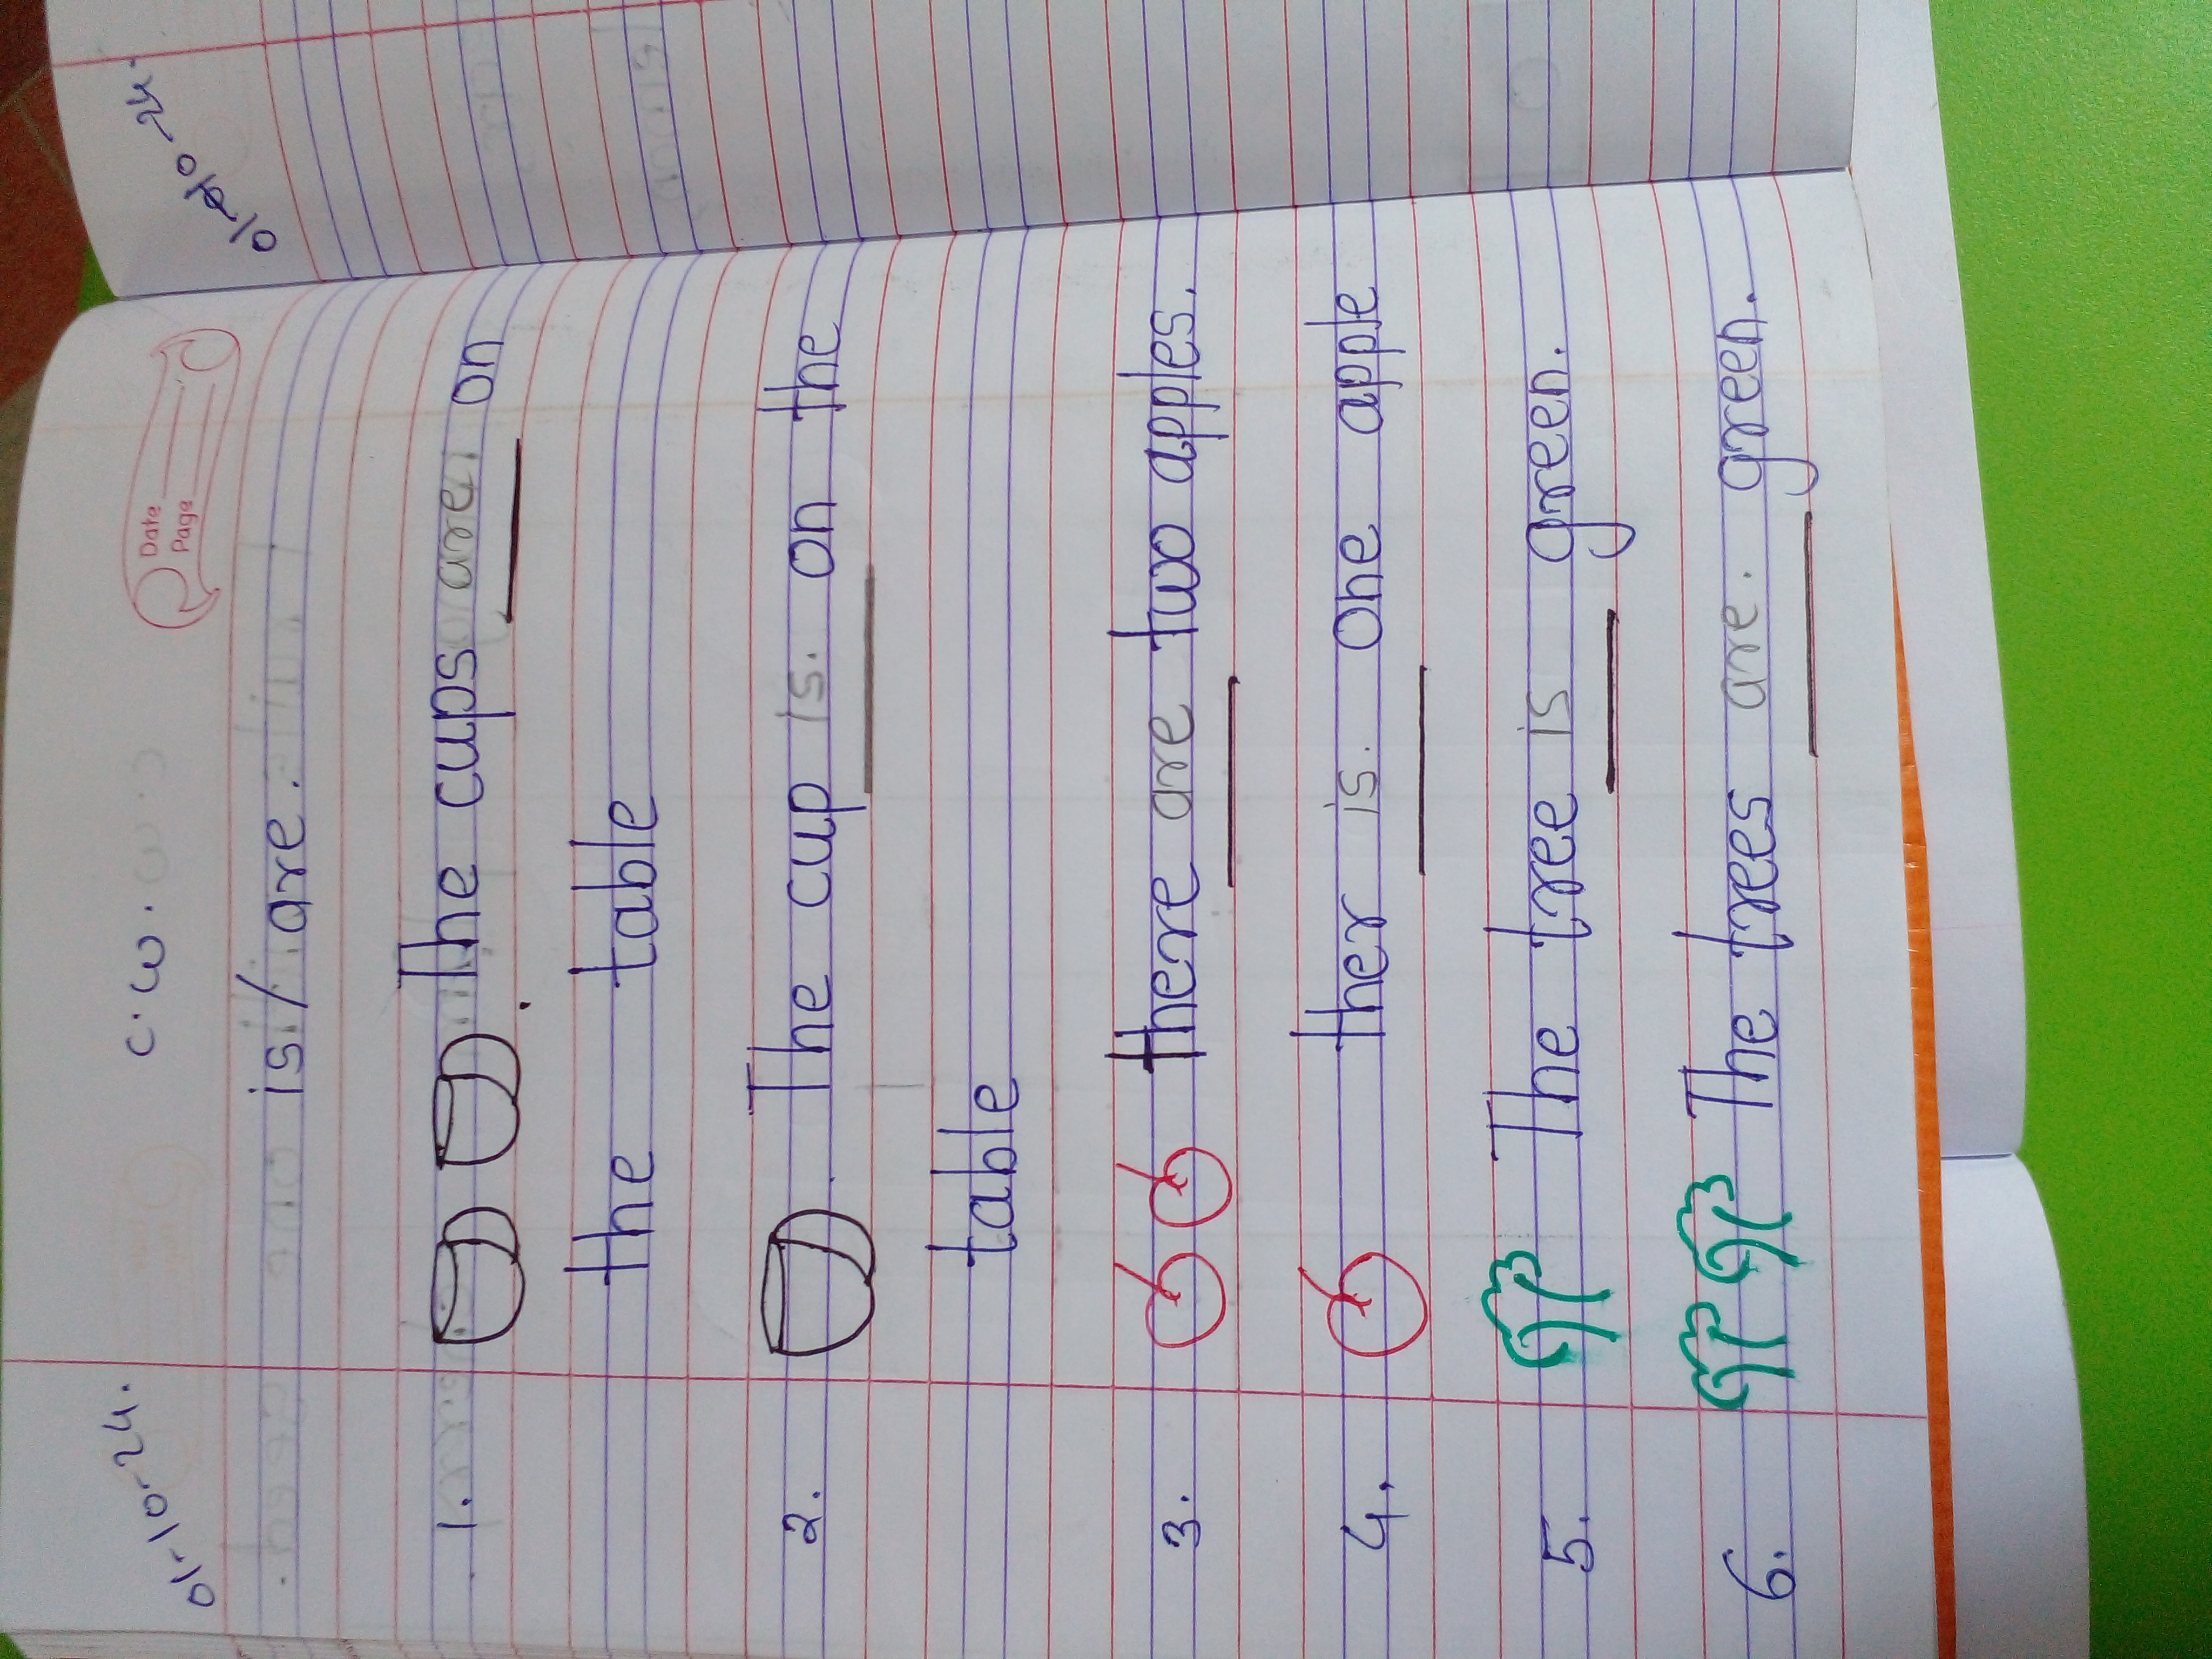 01-10-24.
C.W.
Date
Page
is/are.
1. The cups are on
the table
2. The cup is. on the
table
3. there are two apples.
4. ther is. one apple
5. The tree is green.
6. The trees are. green.